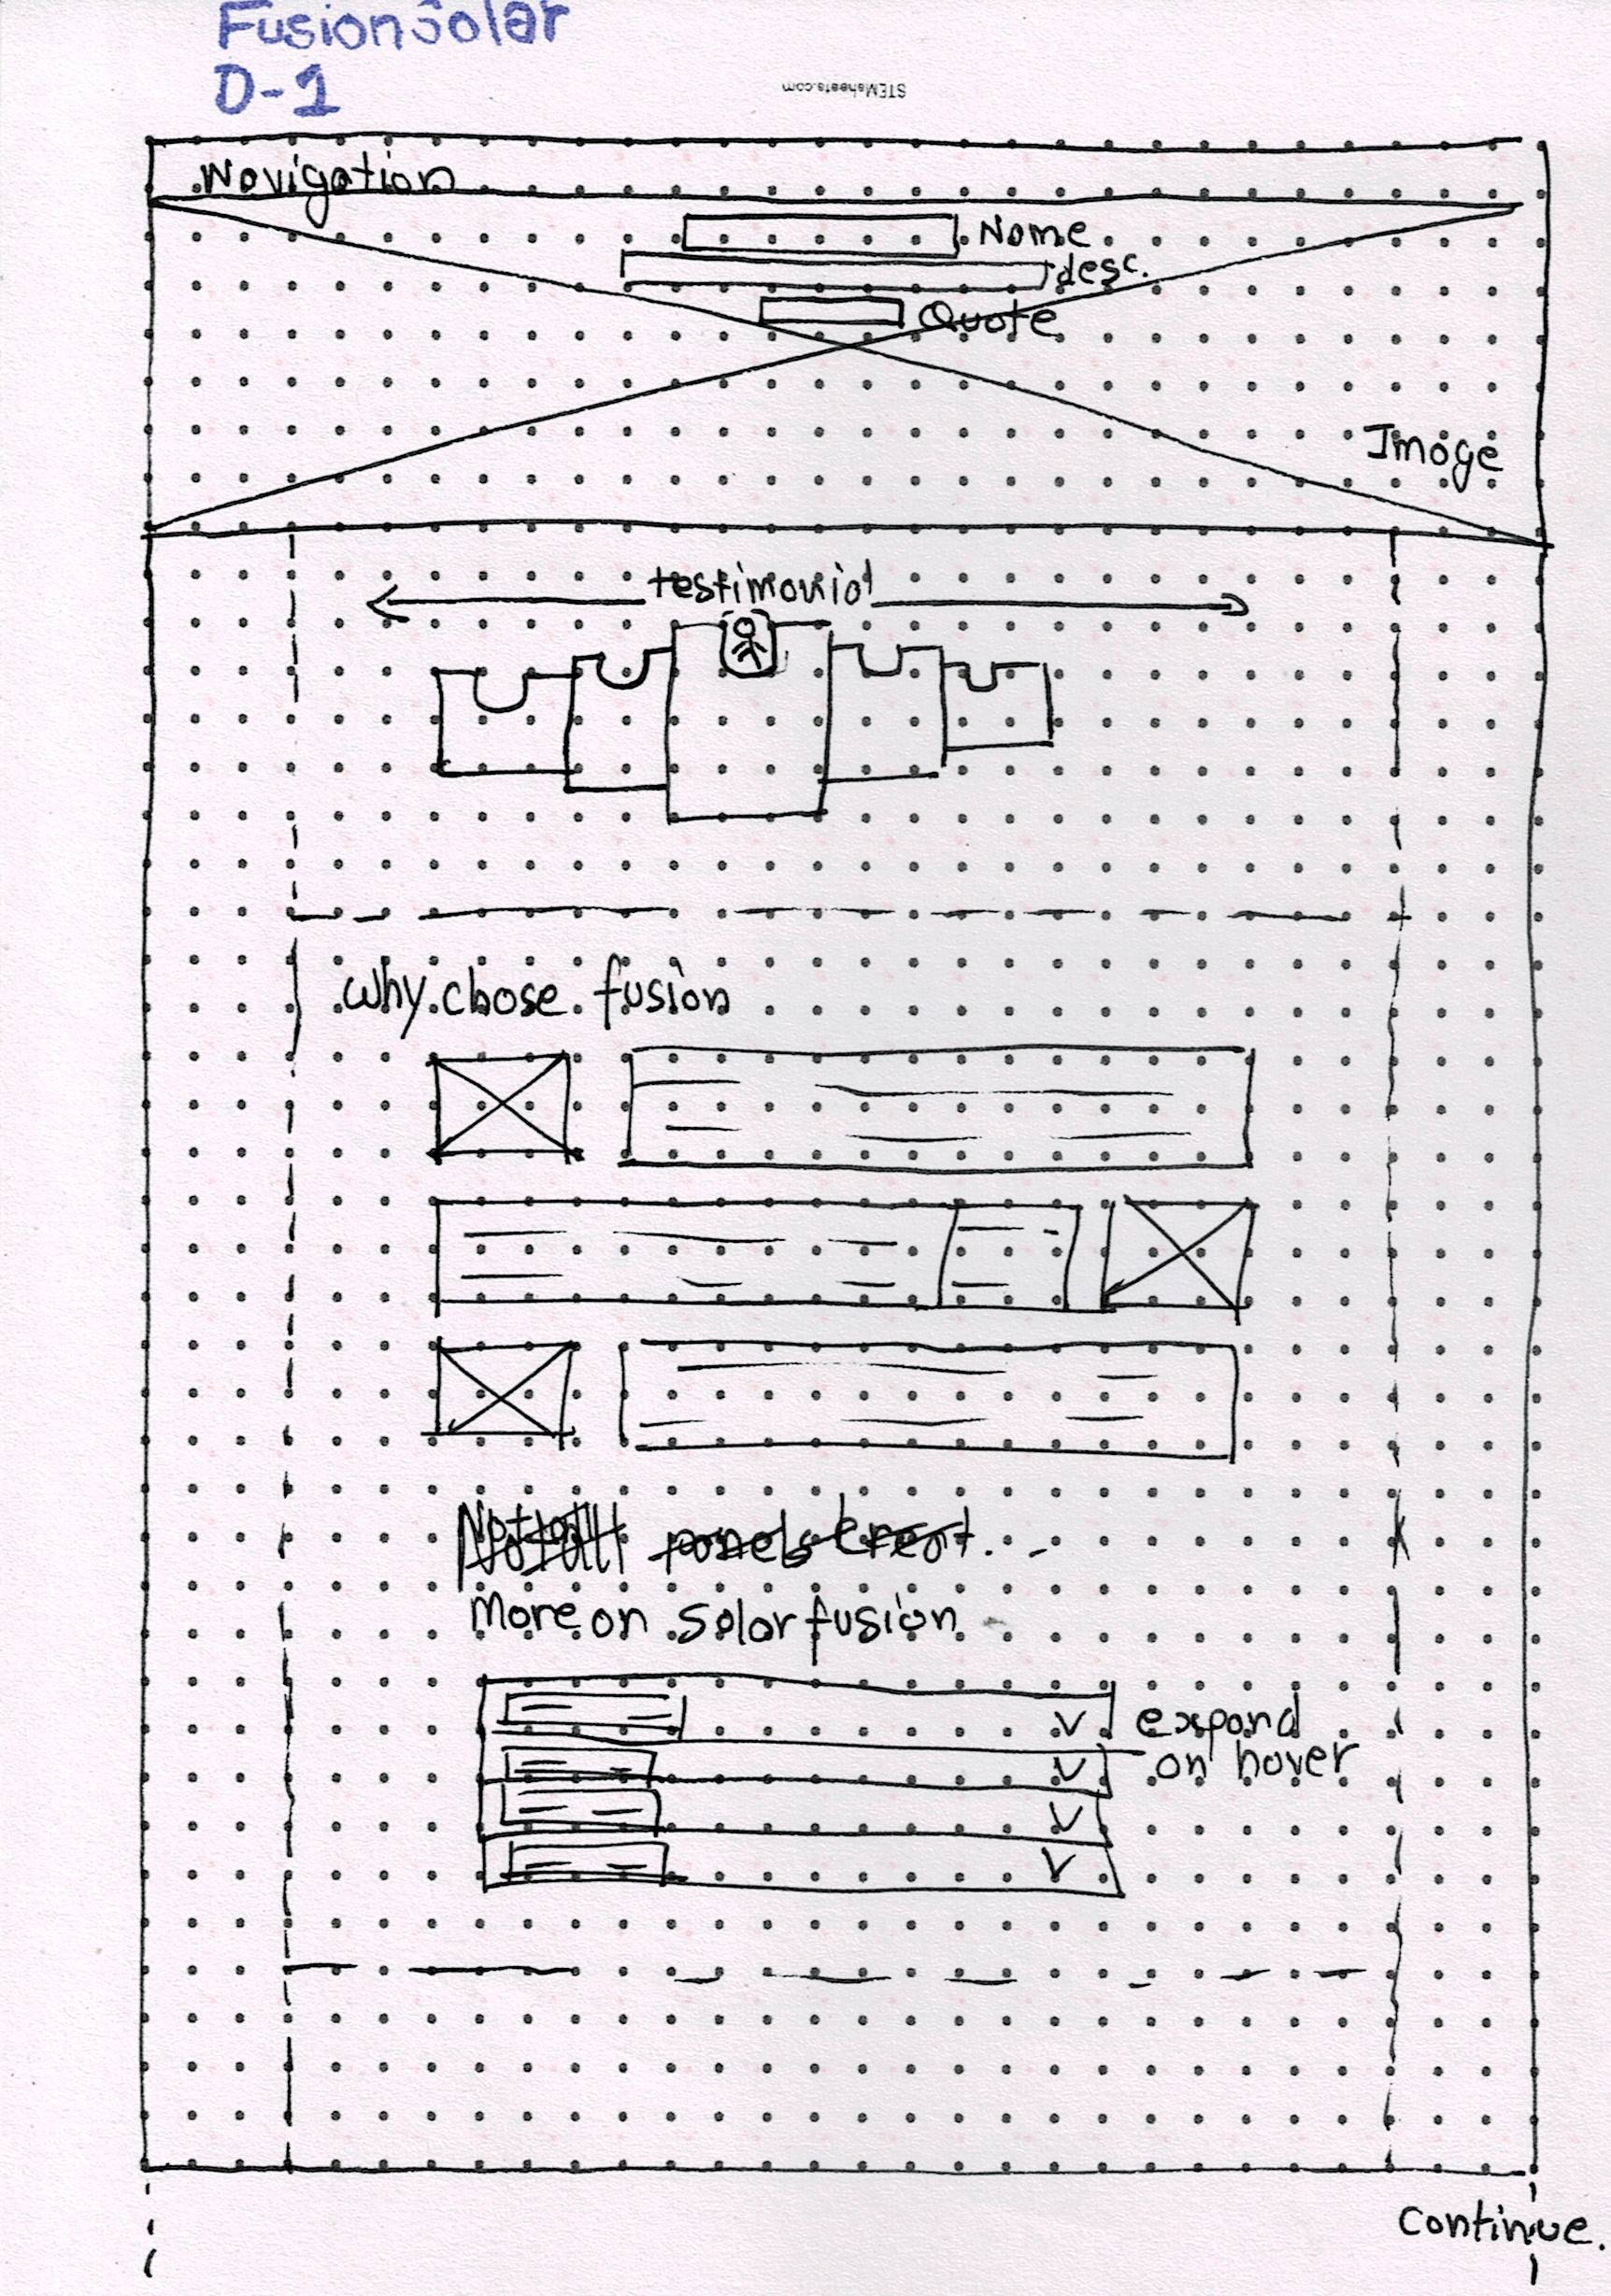 FusionSolar
D-1
STEMsheets.com
Navigation
Name
desc.
Quote
Image
testimonial
Why chose fusion
Not all panels Creat. . -
More on Solar fusion
expand
on hover
Continue.